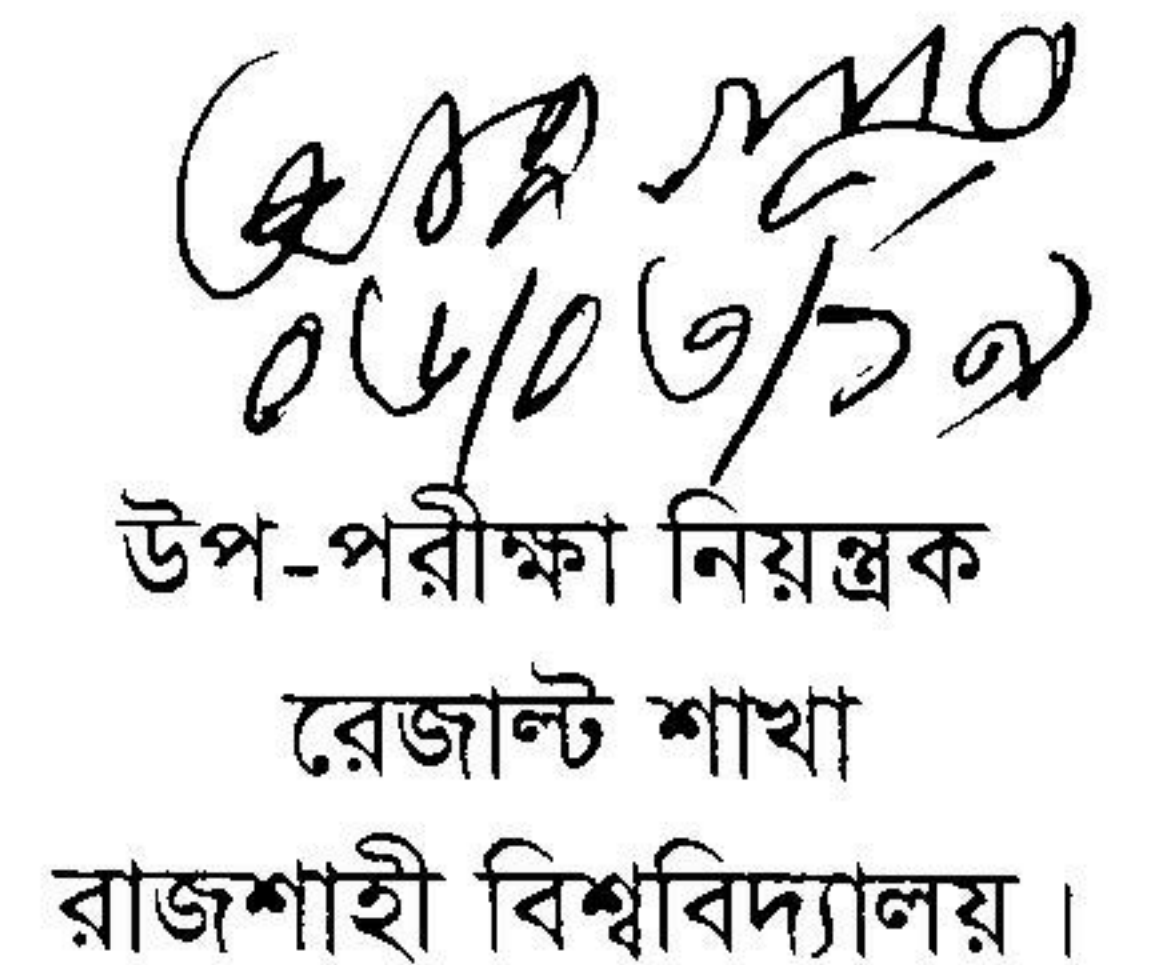 ০৬/০৩/১৯
উপ-পরীক্ষা নিয়ন্ত্রক
রেজাল্ট শাখা
রাজশাহী বিশ্ববিদ্যালয় ।